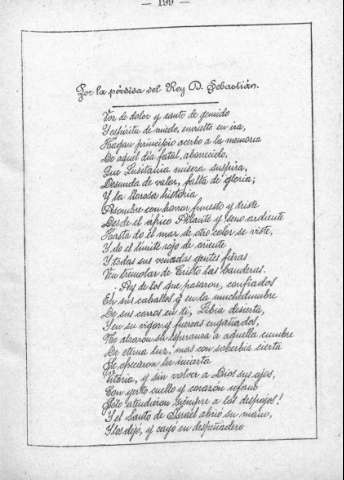 — 199 —
Por la pérdida del Rey D. Sebastián.
Voz de dolor y canto de gemido
Y espíritu de miedo, envuelto en ira,
Hagan principio acerbo a la memoria
De aquel día fatal, aborrecido,
Que Lusitania mísera suspira,
Desnuda de valor, falta de gloria;
Y la llorosa historia
Asombre con horror funesto y triste
Desde el áfrico Atlante y seno ardiente
Hasta do el mar de otro color se viste,
Y do el límite rojo de oriente
Y todas sus vencidas gentes fieras
Ven tremolar de Cristo las banderas.
¡Ay de los que pasaron, confiados
En sus caballos y en la muchedumbre
De sus carros en ti, Libia desierta,
Y en su vigor y fuerzas engañados,
No alzaron su esperanza a aquella cumbre
De eterna luz, mas con soberbia cierta
Se ofrecieron la incierta
Vitoria, y sin volver a Dios sus ojos,
Con yerto cuello y corazón ufano
Sólo atendieron siempre a los despojos!
Y el Santo de Israel abrió su mano,
Y los dejó, y cayó en despeñadero